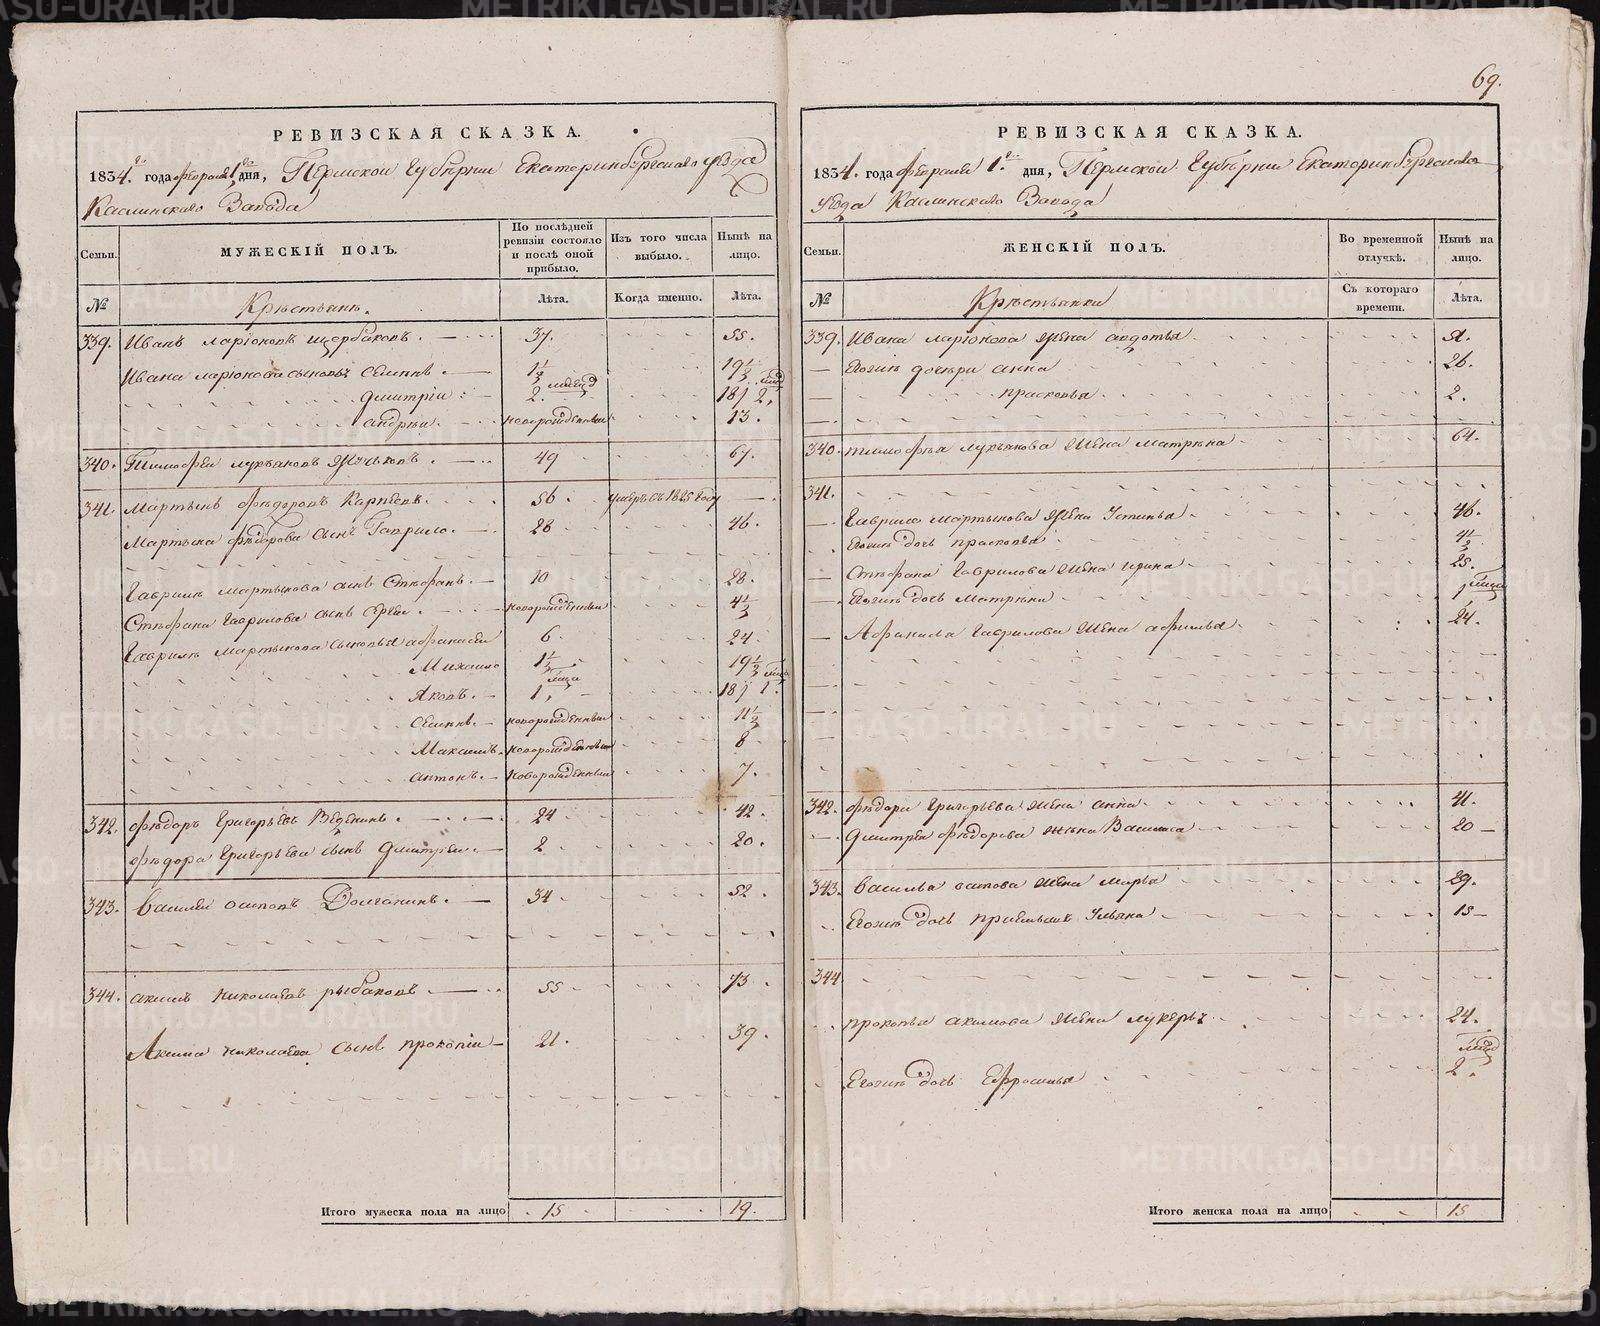 69.
РЕВИЗСКАЯ СКАЗКА.
1834. года февраля 1 дня, Пермской Губернии Екатеринбургскаго уезда
Каслинскаго Завода
Семьи. МУЖЕСКІЙ ПОЛЪ. По послѣдней ревизіи состояло и послѣ оной прибыло. Изъ того числа выбыло. Нынѣ на лицо.
№ Крѣстьянѣ. Лѣта. Когда именно. Лѣта.
339. Иванъ ларіоновъ щербаковъ. 37. 55.
Ивана ларіонова сыновья семенъ. 1½ 19½
дмитріи 2. месец 18 / 2. мец
андреи новорожденныи 13.
340. Тимофеи лукьяновъ 49 67.
341. Мартынъ федоровъ Карпеевъ. 56. умеръ въ 1825 году
Мартына федорова сынъ Гаврило. 28 46.
Гаврилы мартынова сынъ Стефанъ. 10 28.
Стефана Гаврилова сынъ новорожденныи 4½
Гаврилы мартынова сыновья афанасеи 6. 24.
Михаило 1½ 19½
Яковъ. 1. меца 18 / 1. мец
семенъ. новорожденныи 11½
Максимъ. новорожденныи 8
антонъ. новорожденныи 7.
342. федоръ Григорьевъ Веденинъ. 24 42.
федора Григорьева сынъ дмитреи. 2 20.
343. Василеи осиповъ Долганинъ. 34 52.
344. акимъ николаевъ рыбаковъ 55 73.
Акима николаева сынъ прокопіи 21. 39.
Итого мужеска пола на лицо 15 19.
РЕВИЗСКАЯ СКАЗКА.
1834. года февраля 1. дня, Пермской Губернии Екатеринбургскаго
уезда Каслинскаго Завода
Семьи. ЖЕНСКІЙ ПОЛЪ. Во временной отлучкѣ. Нынѣ на лицо.
№ Крѣстьянки Съ котораго времени. Лѣта.
339. Ивана ларіонова жена авдотья
Егожъ дочери анна 26.
прасковья 2.
340. тимофея лукьянова жена матрена 64.
341.
Гаврила мартынова жена Устинья 46.
Егожъ дочь прасковья 4½
Стефана Гаврилова жена ирина 25.
Егожъ дочь Матрена 1 меца
Афанасья Гаврилова жена афимья 24.
342. федора Григорьева жена анна 41.
дмитрея федорова жена Василиса 20
343. василья осипова жена марья 29.
Егожъ дочь Ульяна 15
344
прокопья акимова жена лукерья 24.
Егожъ дочь Ефросинья 2. месец
Итого женска пола на лицо 15
METRIKI.GASO-URAL.RU